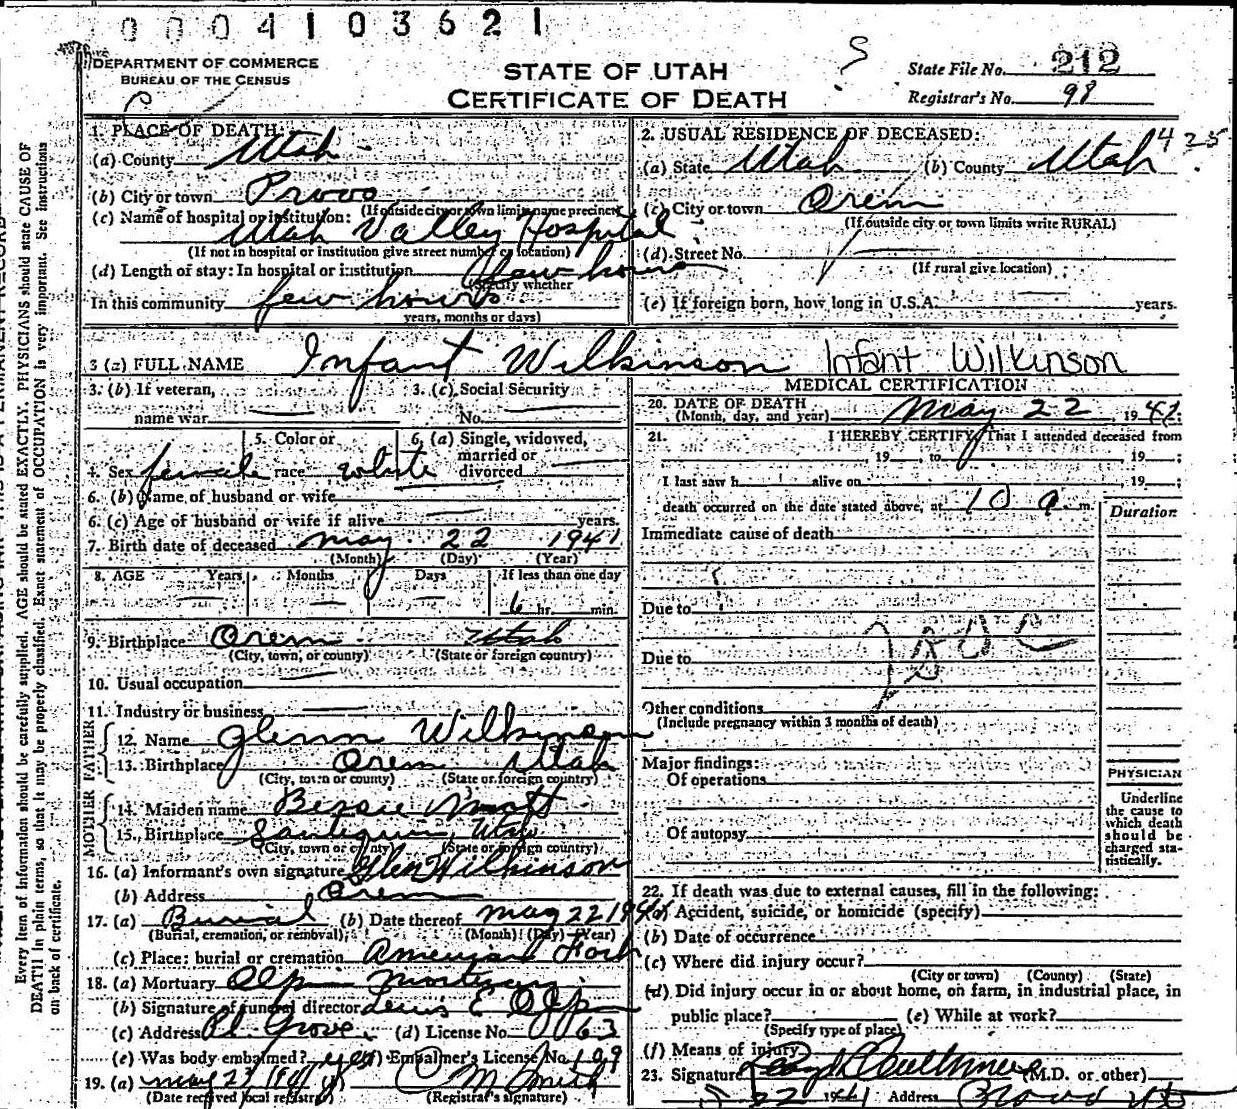 0004103621
DEPARTMENT OF COMMERCE
BUREAU OF THE CENSUS
STATE OF UTAH
CERTIFICATE OF DEATH
S
State File No. 212
Registrar's No. 98
1. PLACE OF DEATH:
(a) County Utah
(b) City or town Provo
(If outside city or town limits name precinct
(c) Name of hospital or institution:
Utah Valley Hospital
(If not in hospital or institution give street number or location)
(d) Length of stay: In hospital or institution few hours
(Specify whether
In this community few hours
years, months or days)
2. USUAL RESIDENCE OF DECEASED:
(a) State Utah (b) County Utah 425
(c) City or town Orem
(If outside city or town limits write RURAL)
(d) Street No.
(If rural give location)
(e) If foreign born, how long in U.S.A. years.
3 (a) FULL NAME Infant Wilkinson Infant Wilkinson
3. (b) If veteran,
name war
3. (c) Social Security
No.
4. Sex female
5. Color or
race white
6. (a) Single, widowed,
married or
divorced
6. (b) Name of husband or wife
6. (c) Age of husband or wife if alive years.
7. Birth date of deceased May 22 1941
(Month) (Day) (Year)
8. AGE Years Months Days If less than one day
6 hr. min.
9. Birthplace Orem Utah
(City, town, or county) (State or foreign country)
10. Usual occupation
11. Industry or business
FATHER
12. Name Glenn Wilkinson
13. Birthplace Orem Utah
(City, town or county) (State or foreign country)
MOTHER
14. Maiden name Bessie Mott
15. Birthplace Santaquin, Utah
(City, town or county) (State or foreign country)
16. (a) Informant's own signature Glen Wilkinson
(b) Address Orem
17. (a) Burial (b) Date thereof May 22 1941
(Burial, cremation, or removal) (Month) (Day) (Year)
(c) Place: burial or cremation American Fork
18. (a) Mortuary Olpin Mortuary
(b) Signature of funeral director Lewis E Olpin
(c) Address Pl. Grove (d) License No. 63
(e) Was body embalmed? yes (f) Embalmer's License No. 109
19. (a) May 23 1941 M Smith
(Date received local registrar) (Registrar's signature)
MEDICAL CERTIFICATION
20. DATE OF DEATH
(Month, day, and year) May 22, 1941;
21. I HEREBY CERTIFY, That I attended deceased from
19 , to 19 ;
I last saw h alive on , 19 ;
death occurred on the date stated above, at 10 a. m.
Duration
Immediate cause of death
Due to
Due to
Other conditions
(Include pregnancy within 3 months of death)
Major findings:
Of operations
Of autopsy
PHYSICIAN
Underline
the cause to
which death
should be
charged sta-
tistically.
22. If death was due to external causes, fill in the following:
(a) Accident, suicide, or homicide (specify)
(b) Date of occurrence
(c) Where did injury occur?
(City or town) (County) (State)
(d) Did injury occur in or about home, on farm, in industrial place, in
public place? (e) While at work?
(Specify type of place)
(f) Means of injury
23. Signature (M.D. or other)
5 22 1941 Address Provo Ut
Every item of information should be carefully supplied. AGE should be stated EXACTLY. PHYSICIANS should state CAUSE OF
DEATH in plain terms, so that it may be properly classified. Exact statement of OCCUPATION is very important. See instructions
on back of certificate.